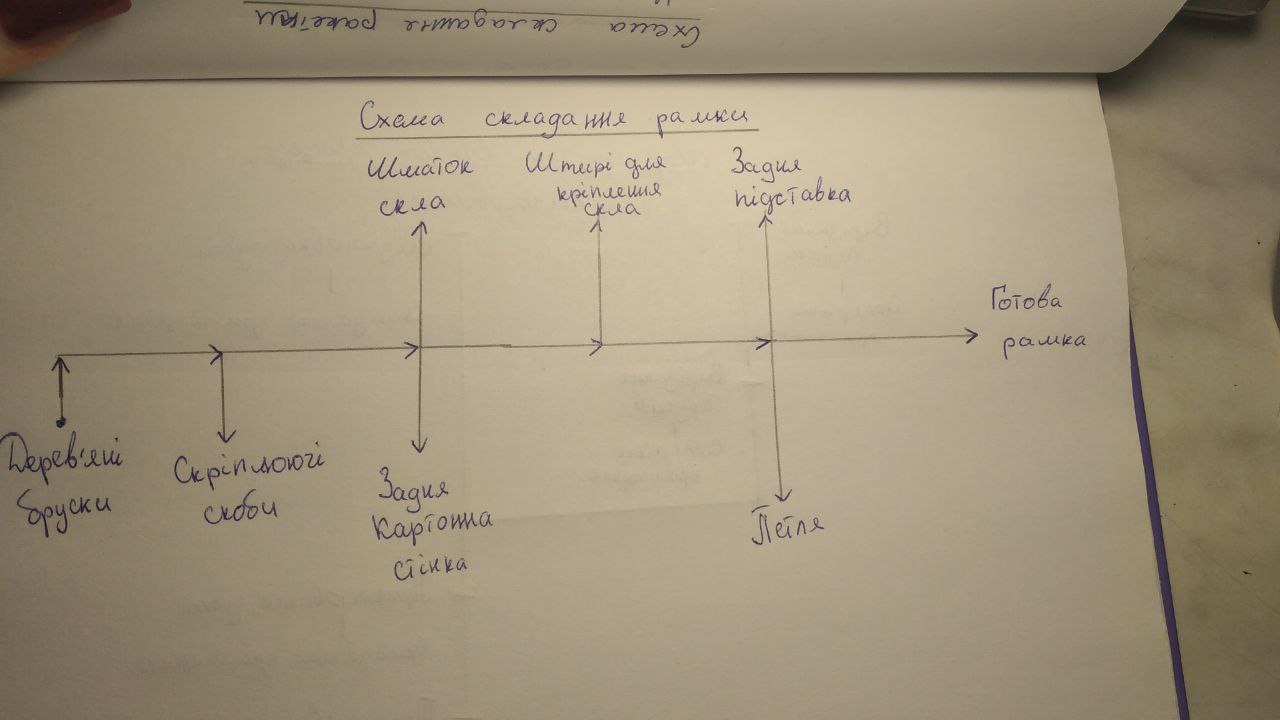 Схема складання ракетки
Схема складання рамки
Шматок
скла
Штирі для
кріплення
скла
Задня
підставка
Готова
рамка
Дерев'яні
бруски
Скріплюючі
скоби
Задня
Картонна
стінка
Петля